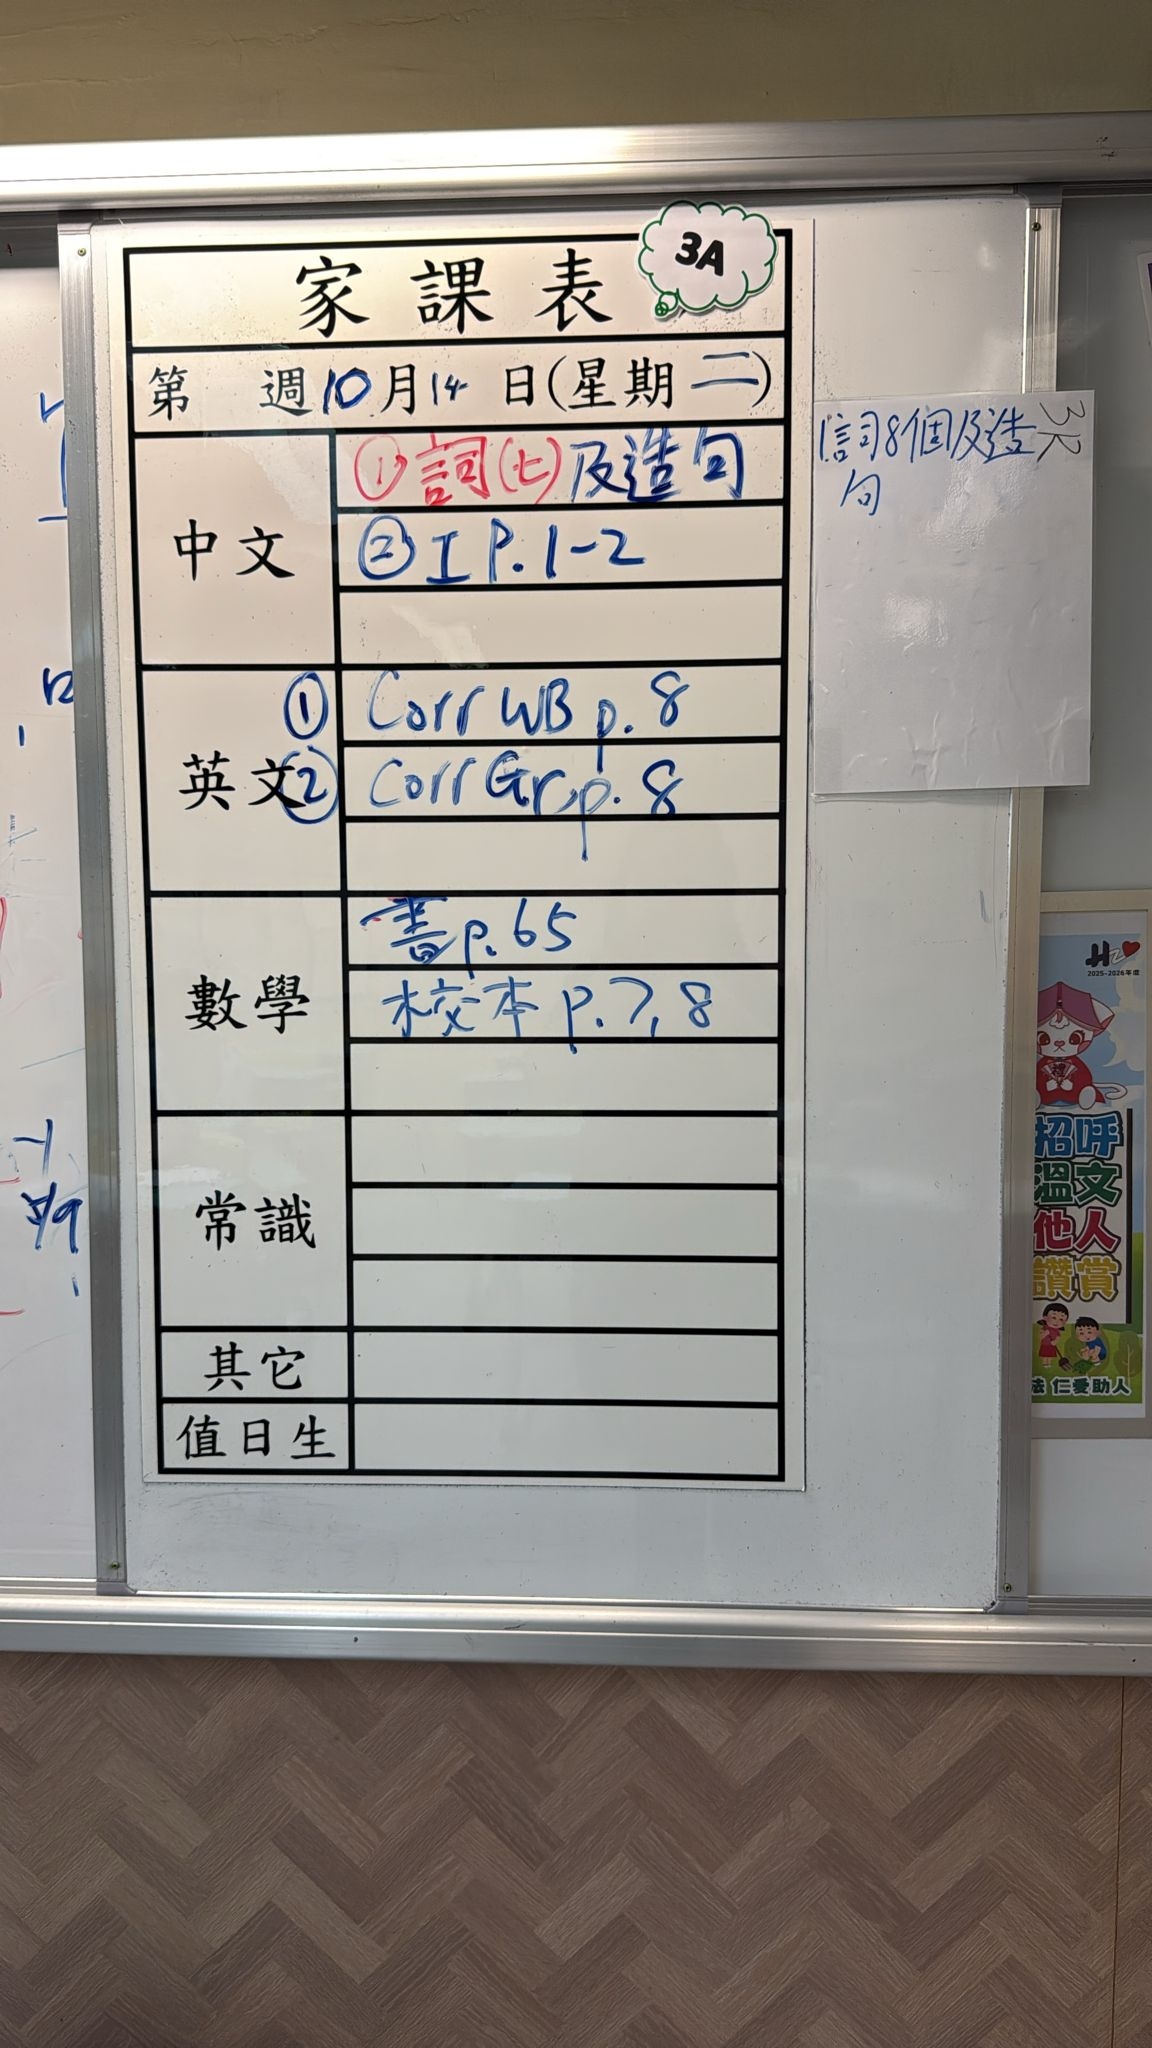 家課表
3A
第 週10月14日(星期二)
中文
①詞(七)及造句
②工P.1-2
英文
① Corr WB p.8
② Corr Gr. p.8
數學
書p.65
校本 p.7,8
常識
其它
值日生
1.詞8個及造
句
2025-2026年度
招呼
溫文
他人
讚賞
法 仁愛助人